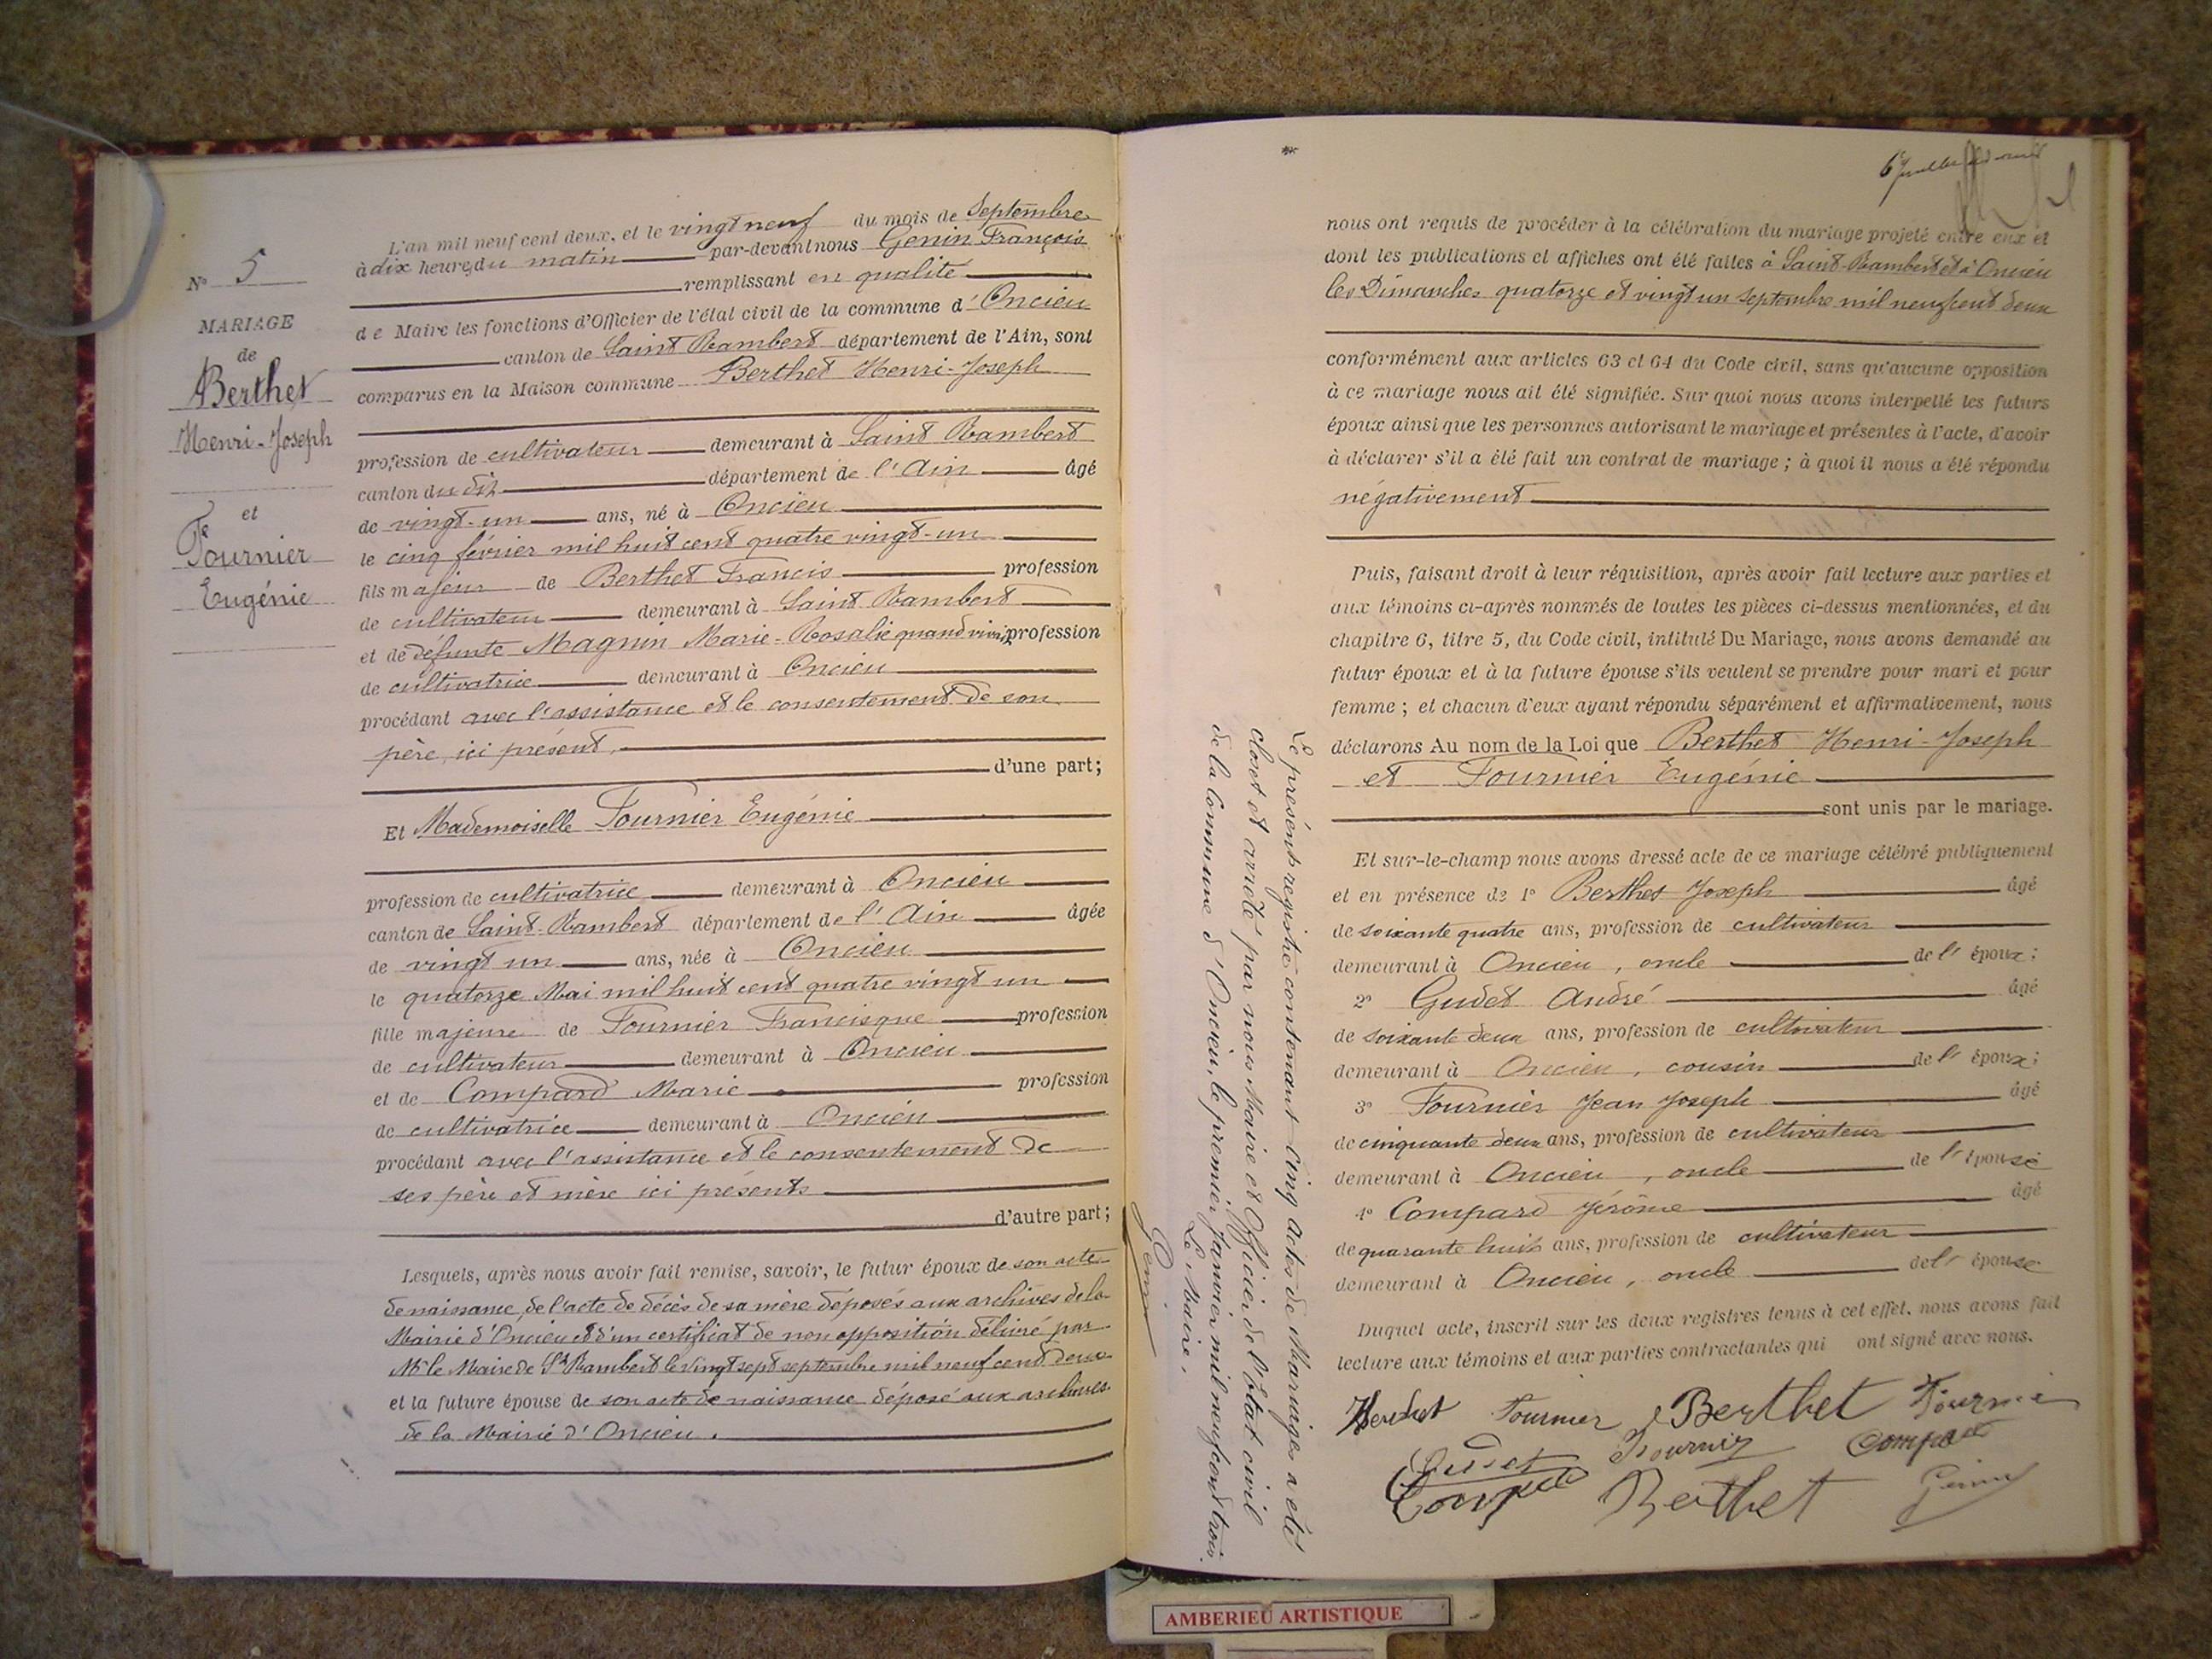 N° 5
MARIAGE
de
Berthet
Henri-Joseph
et
Fournier
Eugénie
L'an mil neuf cent deux, et le vingt neuf du mois de Septembre
à dix heures du matin par-devant nous Genin François
remplissant en qualité
de Maire les fonctions d'Officier de l'état civil de la commune d'Oncieu
canton de Saint Rambert département de l'Ain, sont
comparus en la Maison commune Berthet Henri-Joseph
profession de cultivateur demeurant à Saint Rambert
canton du dit département de l'Ain âgé
de vingt-un ans, né à Oncieu
le cinq février mil huit cent quatre vingt-un
fils majeur de Berthet Francis profession
de cultivateur demeurant à Saint Rambert
et de défunte Magnin Marie-Rosalie quand vivait profession
de cultivatrice demeurant à Oncieu
procédant avec l'assistance et le consentement de son
père, ici présent,
d'une part;
Et Mademoiselle Fournier Eugénie
profession de cultivatrice demeurant à Oncieu
canton de Saint-Rambert département de l'Ain âgée
de vingt un ans, née à Oncieu
le quatorze Mai mil huit cent quatre vingt un
fille majeure de Fournier Francisque profession
de cultivateur demeurant à Oncieu
et de Compard Marie profession
de cultivatrice demeurant à Oncieu
procédant avec l'assistance et le consentement de
ses père et mère ici présents
d'autre part;
Lesquels, après nous avoir fait remise, savoir, le futur époux de son acte
de naissance, de l'acte de décès de sa mère déposés aux archives de la
Mairie d'Oncieu et d'un certificat de non opposition délivré par
Mr le Maire de St Rambert le vingt sept septembre mil neuf cent deux
et la future épouse de son acte de naissance déposé aux archives
de la Mairie d'Oncieu.
nous ont requis de procéder à la célébration du mariage projeté entre eux et
dont les publications et affiches ont été faites à Saint-Rambert et à Oncieu
les Dimanches quatorze et vingt un septembre mil neuf cent deux
conformément aux articles 63 et 64 du Code civil, sans qu'aucune opposition
à ce mariage nous ait été signifiée. Sur quoi nous avons interpellé les futurs
époux ainsi que les personnes autorisant le mariage et présentes à l'acte, d'avoir
à déclarer s'il a été fait un contrat de mariage ; à quoi il nous a été répondu
négativement
Puis, faisant droit à leur réquisition, après avoir fait lecture aux parties et
aux témoins ci-après nommés de toutes les pièces ci-dessus mentionnées, et du
chapitre 6, titre 5, du Code civil, intitulé Du Mariage, nous avons demandé au
futur époux et à la future épouse s'ils veulent se prendre pour mari et pour
femme ; et chacun d'eux ayant répondu séparément et affirmativement, nous
déclarons Au nom de la Loi que Berthet Henri-Joseph
et Fournier Eugénie
sont unis par le mariage.
Et sur-le-champ nous avons dressé acte de ce mariage célébré publiquement
et en présence de 1° Berthet Joseph âgé
de soixante quatre ans, profession de cultivateur
demeurant à Oncieu, oncle de l'époux;
2° Gudet André âgé
de soixante deux ans, profession de cultivateur
demeurant à Oncieu, cousin de l'époux;
3° Fournier Jean Joseph âgé
de cinquante deux ans, profession de cultivateur
demeurant à Oncieu, oncle de l'épouse
4° Compard Jérôme âgé
de quarante huit ans, profession de cultivateur
demeurant à Oncieu, oncle de l'épouse
Duquel acte, inscrit sur les deux registres tenus à cet effet, nous avons fait
lecture aux témoins et aux parties contractantes qui ont signé avec nous.
Berthet Fournier Berthet Fournier
Gudet Fournier Compard
Compard Berthet Genin
Le présent registre contenant cinq actes de Mariages a été
closet et arrêté par nous Maire et Officier de l'état civil
de la Commune d'Oncieu, le premier Janvier mil neuf cent trois.
Le Maire,
Genin
AMBERIEU ARTISTIQUE